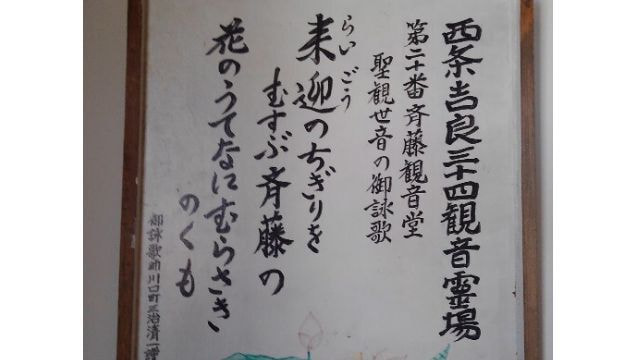 西条吉良三十四観音霊場
第二十番斉藤観音堂
聖観世音の御詠歌
らいごう
来迎のちぎりを
むすぶ斉藤の
花のうてなにむらさき
のくも
御詠歌師川口町三治清一謹